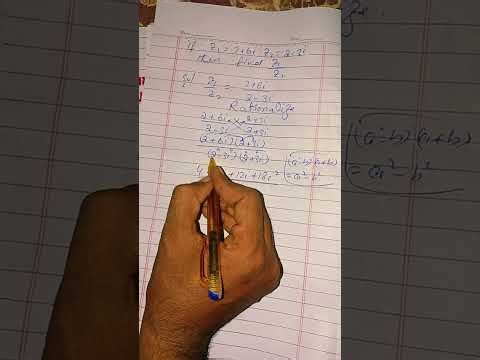 If Z₁ = 2+6i Z₂ = 2-3i
then find Z₁/Z₂
Sol Z₁/Z₂ = 2+6i / 2-3i
Rationalize
2+6i / 2-3i × 2+3i / 2+3i
(2+6i)(2+3i) / (2-3i)(2+3i)
(a-b)(a+b)
= a² - b²
4 + 12i + 18i²